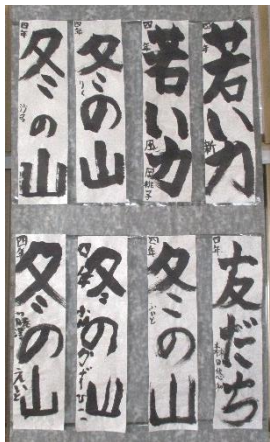 若い力
四年
若い力
四年
冬の山
四年
りく
冬の山
四年
友だち
四年
冬の山
四年
冬の山
四年
冬の山
四年
えいと